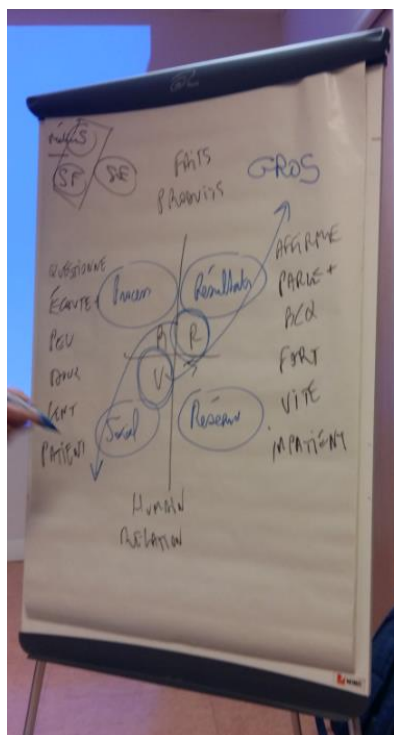 S
SP SE
FAITS
PRODUITS
GROS
QUESTIONNE
ÉCOUTE+
PEU
DOUX
LENT
PATIENT
Process
Résultats
B R
V
Social
Réseau
AFFIRME
PARLE+
BCQ
FORT
VITE
IMPATIENT
HUMAIN
RELATION